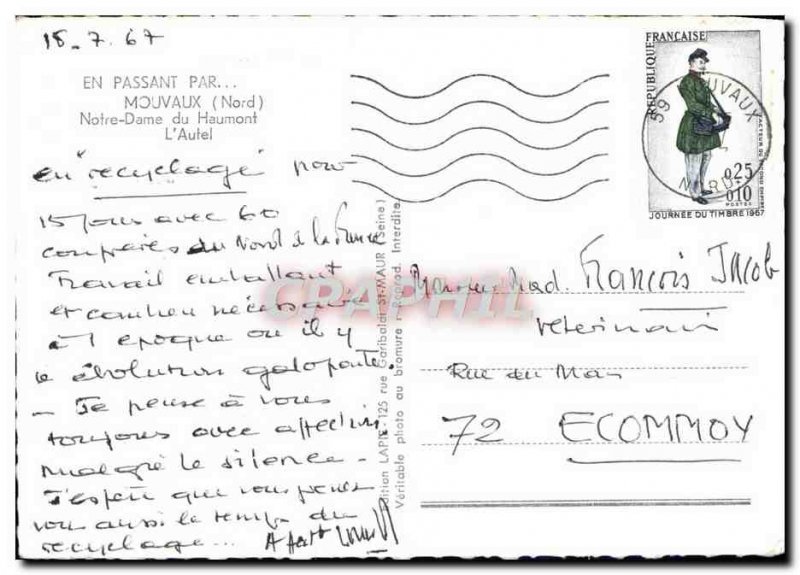 18-7.67
EN PASSANT PAR...
MOUVAUX (Nord)
Notre-Dame du Haumont
L'Autel
en "recyclage" pour
15 jours avec 60
confrères du Nord de la France
Travail emballant
et combien nécessaire
à l'époque où il y
a évolution galopante.
— Je pense à vous
toujours avec affection
malgré le silence.
J'espère que vous prenez
vous aussi le temps du
recyclage...
Edition LAPIE - 125 rue Garibaldi St-MAUR (Seine)
Véritable photo au bromure - Reprod. Interdite
CPAPHIL
RÉPUBLIQUE FRANÇAISE
FACTEUR DU SECOND EMPIRE
0,25
+0,10
POSTES
JOURNÉE DU TIMBRE 1967
59 MOUVAUX
NORD
François Jacob
Vétérinaire
Rue du Mans
72 ECOMMOY